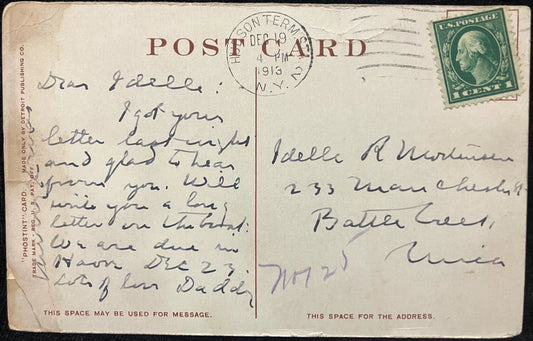 POST CARD
HUDSON TERM. STA.
DEC 19
4 PM
1913
N.Y.
2
U.S. POSTAGE
1 CENT 1
"PHOSTINT" CARD. MADE ONLY BY DETROIT PUBLISHING CO.
TRADE MARK REG. U.S. PAT. OFF.
Dear Idelle:
I got your
letter last night
and glad to hear
from you. Will
write you a long
letter on the boat.
We are due in
Havre DEC 23.
Lots of love Daddy
Idelle R Mortensen
233 Manchester
Battle Creek,
THIS SPACE MAY BE USED FOR MESSAGE.
THIS SPACE FOR THE ADDRESS.